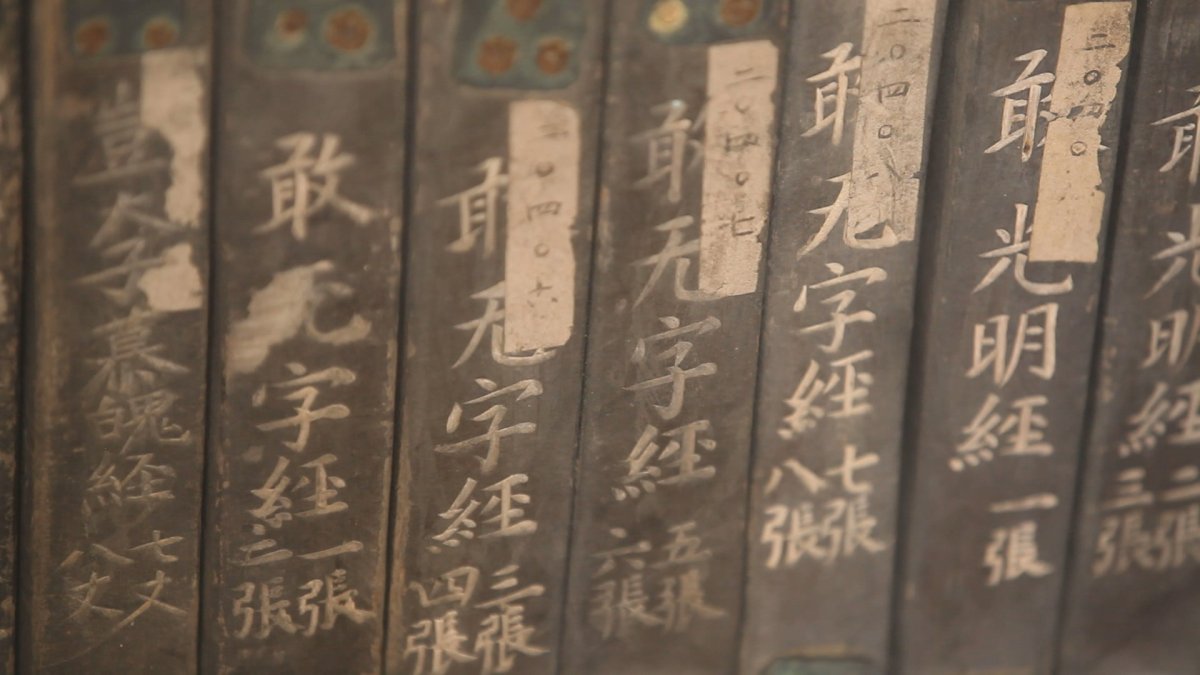 子慕魄經
七丈
八丈
敢无字經
一張
二張
二〇四〇六
敢无字經
三張
四張
二〇四〇七
敢无字經
五張
六張
二〇四〇八
敢无字經
七張
八張
二〇四〇
敢光明經
一張
敢光明經
二張
三張